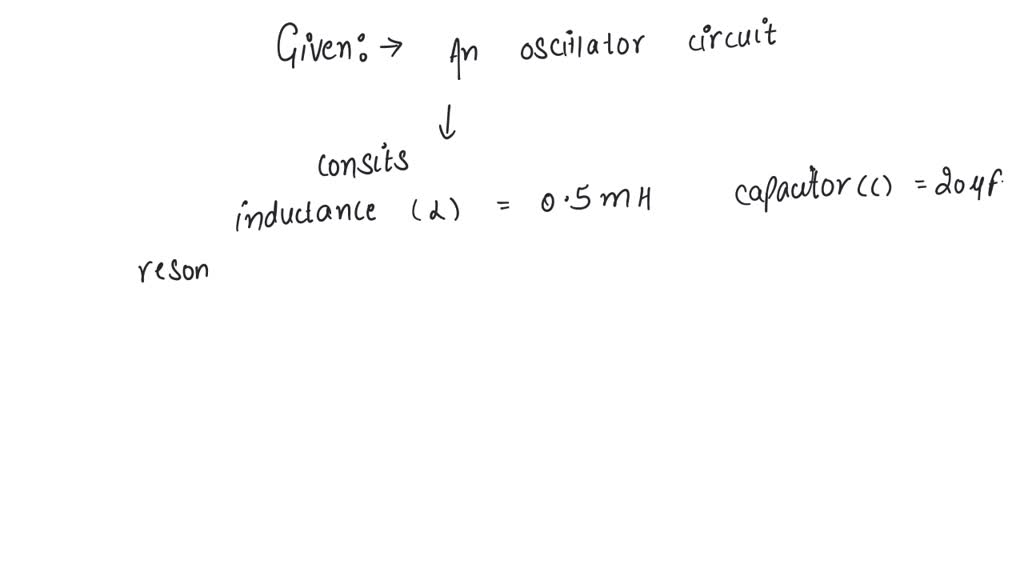 Given:→ An oscillator circuit
↓
consits
inductance (L) = 0.5 mH capacitor (C) = 20 μf.
reson